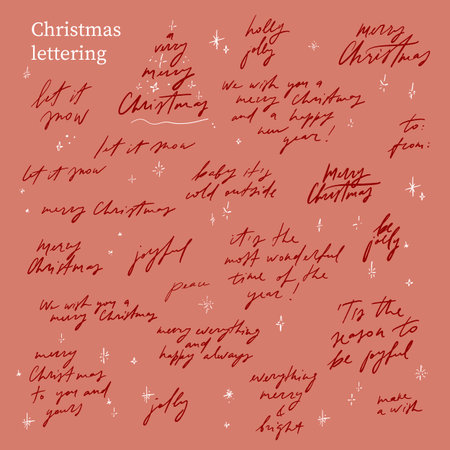 Christmas
lettering
a
very
merry
Christmas
holly
jolly
merry
Christmas
let it
snow
We wish you a
merry Christmas
and a happy
new year!
to:
from:
let it snow
let it snow
baby it's
cold outside
merry
Christmas
merry Christmas
be
jolly
merry
Christmas
joyful
it's the
most wonderful
time of the
year!
peace
We wish you a
merry Christmas
merry everything
and
happy always
'Tis the
season to
be joyful
merry
Christmas
to you and
yours
jolly
everything
merry
&
bright
make
a wish